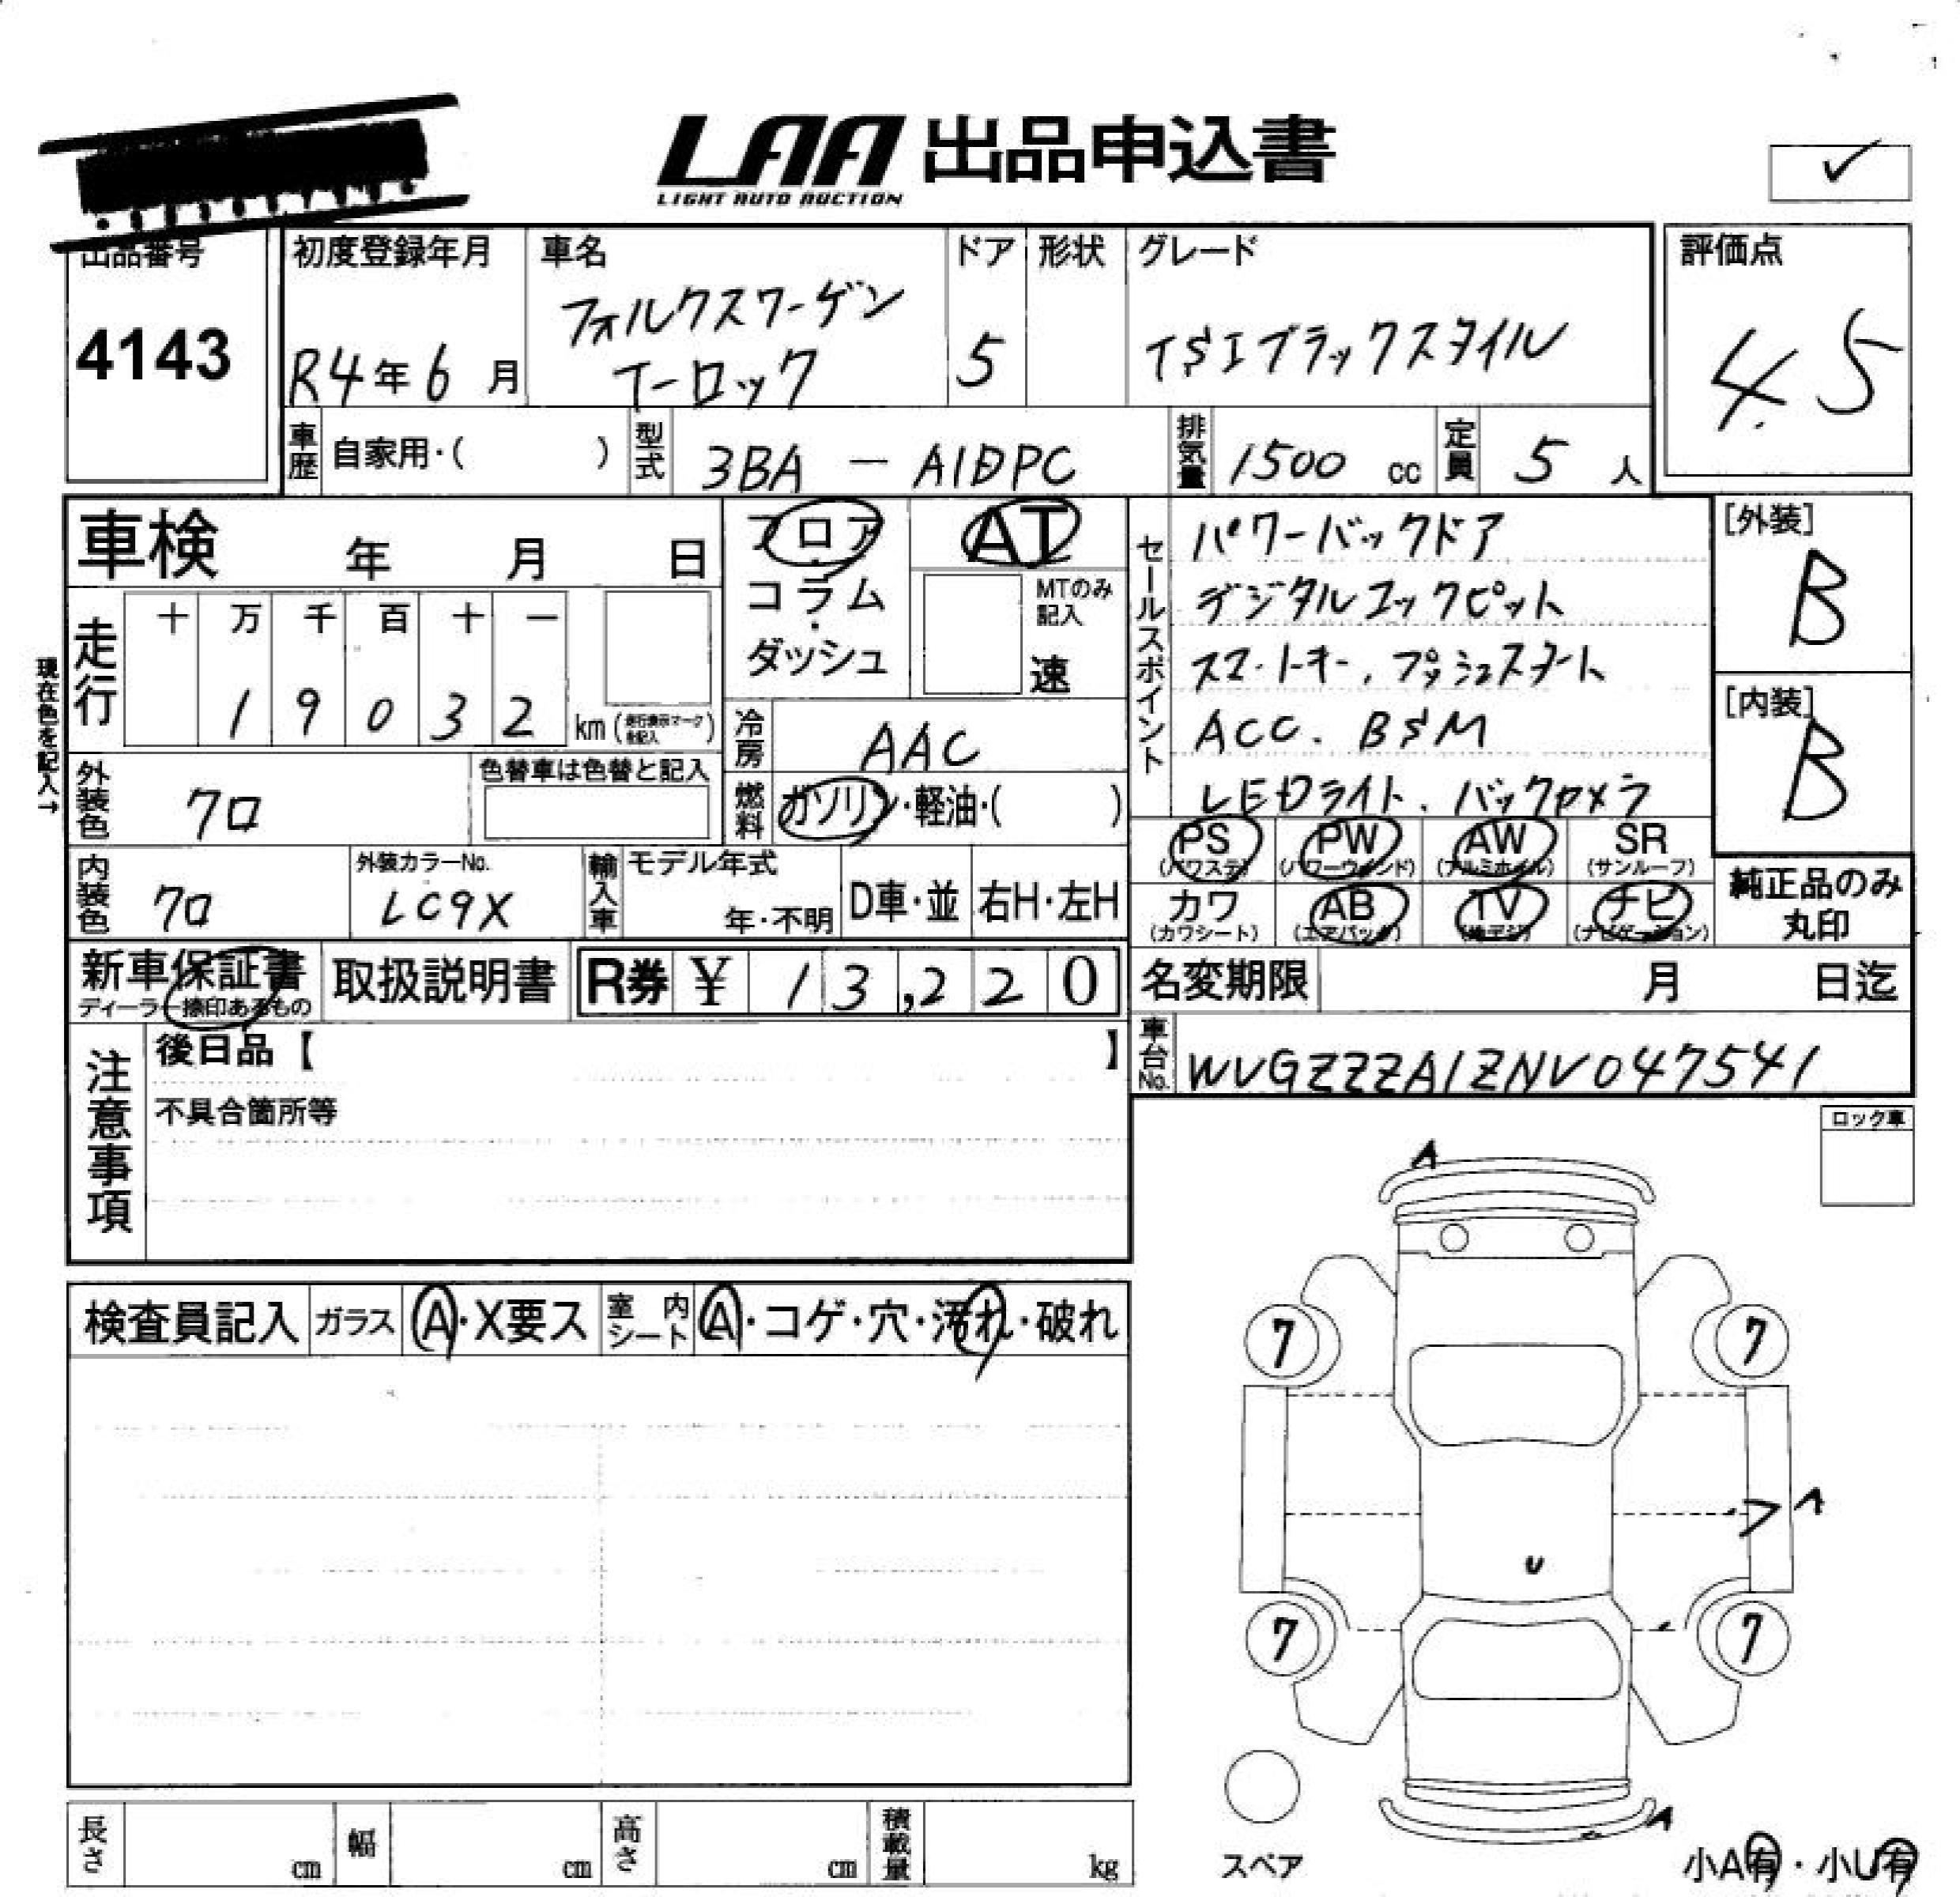 LAA 出品申込書
LIGHT AUTO AUCTION
✓
出品番号
4143
初度登録年月
R4年6月
車名
フォルクスワーゲン
T-ロック
ドア
5
形状
グレード
TSIブラックスタイル
評価点
4.5
車歴
自家用・( )
型式
3BA - A1DPC
排気量
1500 cc
定員
5 人
車検 年 月 日
走行
十 万 千 百 十 一
1 9 0 3 2 km (走行表示マーク記入)
現在色を記入→
外装色
クロ
色替車は色替と記入
内装色
クロ
外装カラーNo.
LC9X
輸入車
モデル年式
年・不明
D車・並
右H・左H
フロア
・
コラム
・
ダッシュ
AT
MTのみ
記入
速
冷房
AAC
燃料
ガソリン・軽油・( )
セールスポイント
パワーバックドア
デジタルコックピット
スマートキー、プッシュスタート
ACC. BSM
LEDライト、バックカメラ
[外装]
B
[内装]
B
PS
(パワステ)
PW
(パワーウインド)
AW
(アルミホイル)
SR
(サンルーフ)
カワ
(カワシート)
AB
(エアバック)
TV
(地デジ)
ナビ
(ナビゲーション)
純正品のみ
丸印
新車保証書
ディーラー捺印あるもの
取扱説明書
R券 ¥ 13,220
名変期限 月 日迄
車台No.
WVGZZZA1ZNV047541
注意事項
後日品【 】
不具合箇所等
ロック車
検査員記入
ガラス
A・X要ス
室内シート
A・コゲ・穴・汚れ・破れ
A
7
7
A
U
7
7
A
スペア
小A有・小U有
長さ cm
幅 cm
高さ cm
積載量 kg